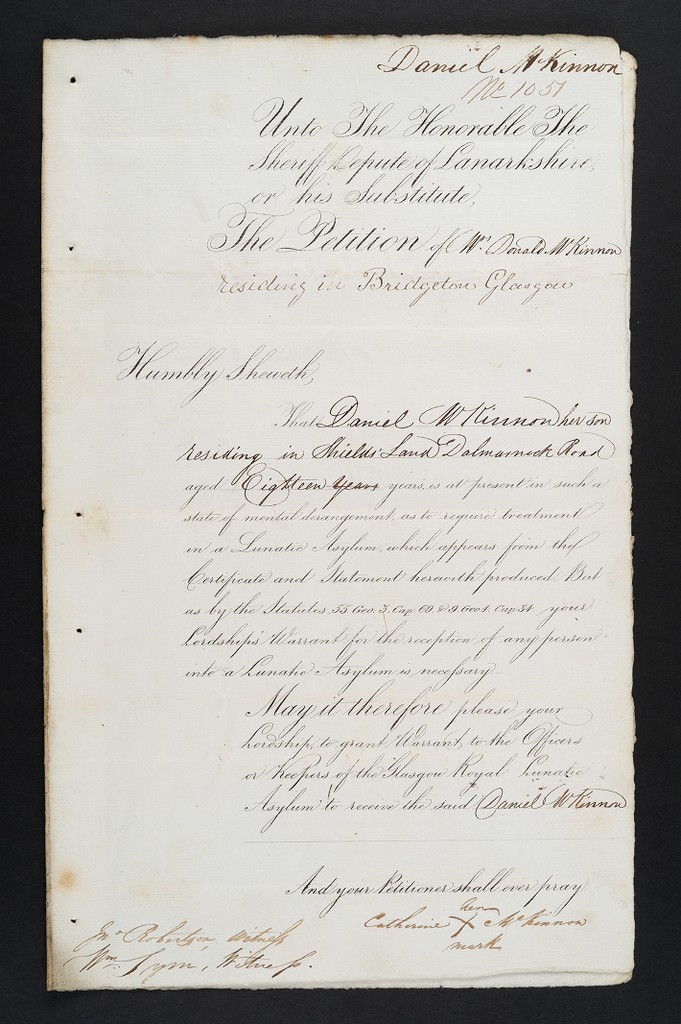 Daniel McKinnon
No 1051
Unto The Honorable The
Sheriff Depute of Lanarkshire,
or his Substitute,
The Petition of Wm Donald McKinnon
residing in Bridgeton Glasgow
Humbly Sheweth,
That Daniel McKinnon her son
residing in Shields Land Dalmarnock Road
aged Eighteen years years, is at present in such a
state of mental derangement, as to require treatment
in a Lunatic Asylum, which appears from the
Certificate and Statement herewith produced. But
as by the Statutes, 55. Geo. 3. Cap. 69. & 9. Geo 4. Cap. 34 your
Lordship's Warrant for the reception of any person
into a Lunatic Asylum is necessary
May it therefore please your
Lordship, to grant Warrant, to the Officers
or Keepers of the Glasgow Royal Lunatic
Asylum to receive the said Daniel McKinnon
And your Petitioner shall ever pray
her
Catherine X McKinnon
mark
Jno Robertson, Witness
Wm Sym, Witness.